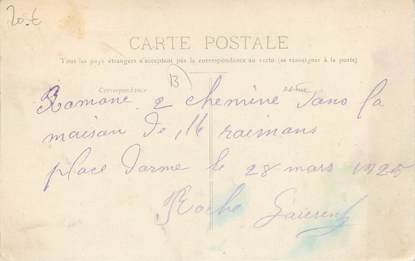 20-€
CARTE POSTALE
Tous les pays étrangers n'acceptent pas la correspondance au verso (se renseigner à la poste)
B
Correspondance
Ramone 2 chemine dans la
maison de M raimans
place darme le 28 mars 1925
Roche